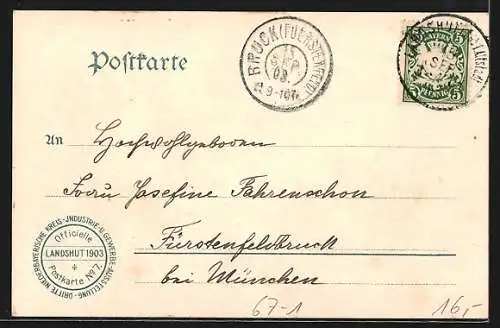 Postkarte
BRUCK (FUERSTENFELD)
SEP
03.
BAYERN
5 5
PFENNIG
An Hochwohlgeboren
Frau Josefine Fahrenschon
Fürstenfeldbruck
bei München
DRITTE NIEDERBAYERISCHE KREIS-JNDUSTRIE-U. GEWERBE-AUSSTELLUNG
Officielle
LANDSHUT 1903
Postkarte No 7.
67-1
16,-